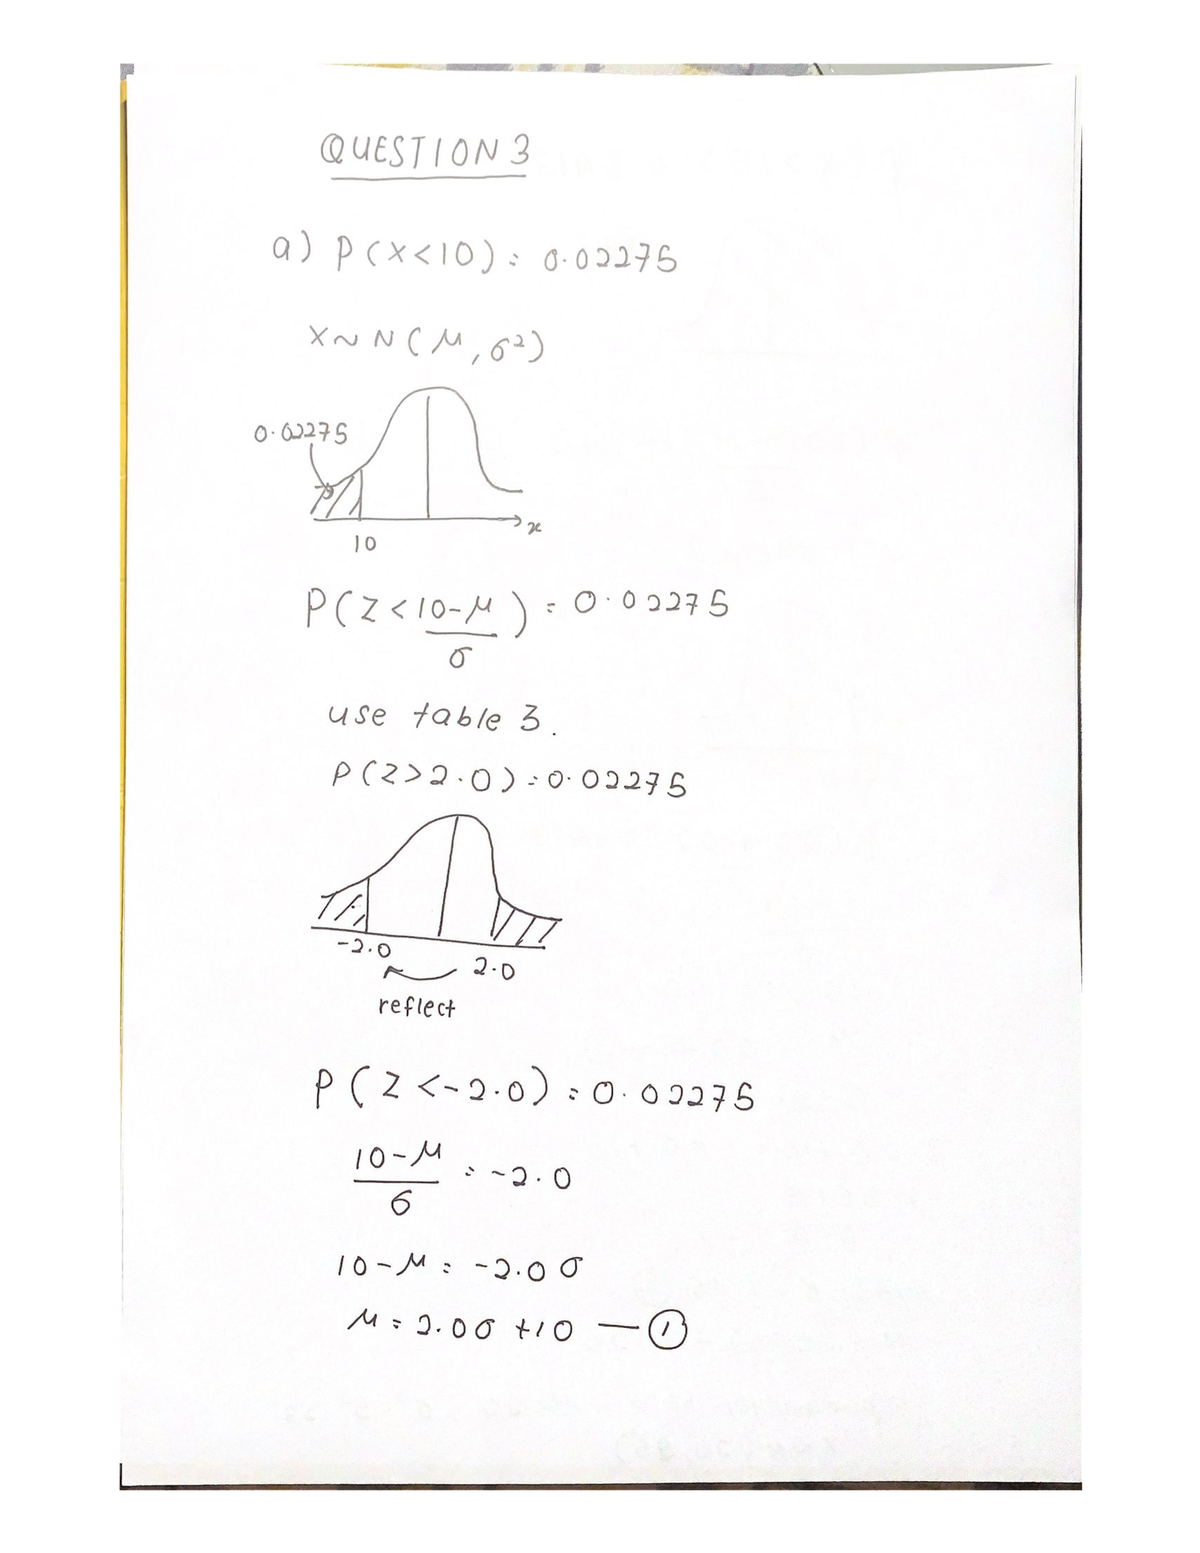 QUESTION 3
a) P(X<10) = 0.02275
X~N(μ,σ²)
0.02275
x
10
P(Z<10-μ/σ) = 0.02275
use table 3.
P(Z>2.0) = 0.02275
-2.0
2.0
reflect
P(Z<-2.0) = 0.02275
10-μ/σ = -2.0
10-μ = -2.0σ
μ = 2.0σ+10 — ①